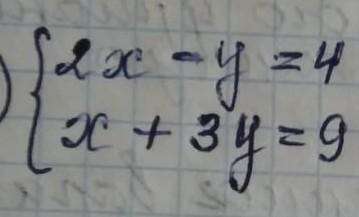 2x - y = 4
x + 3y = 9